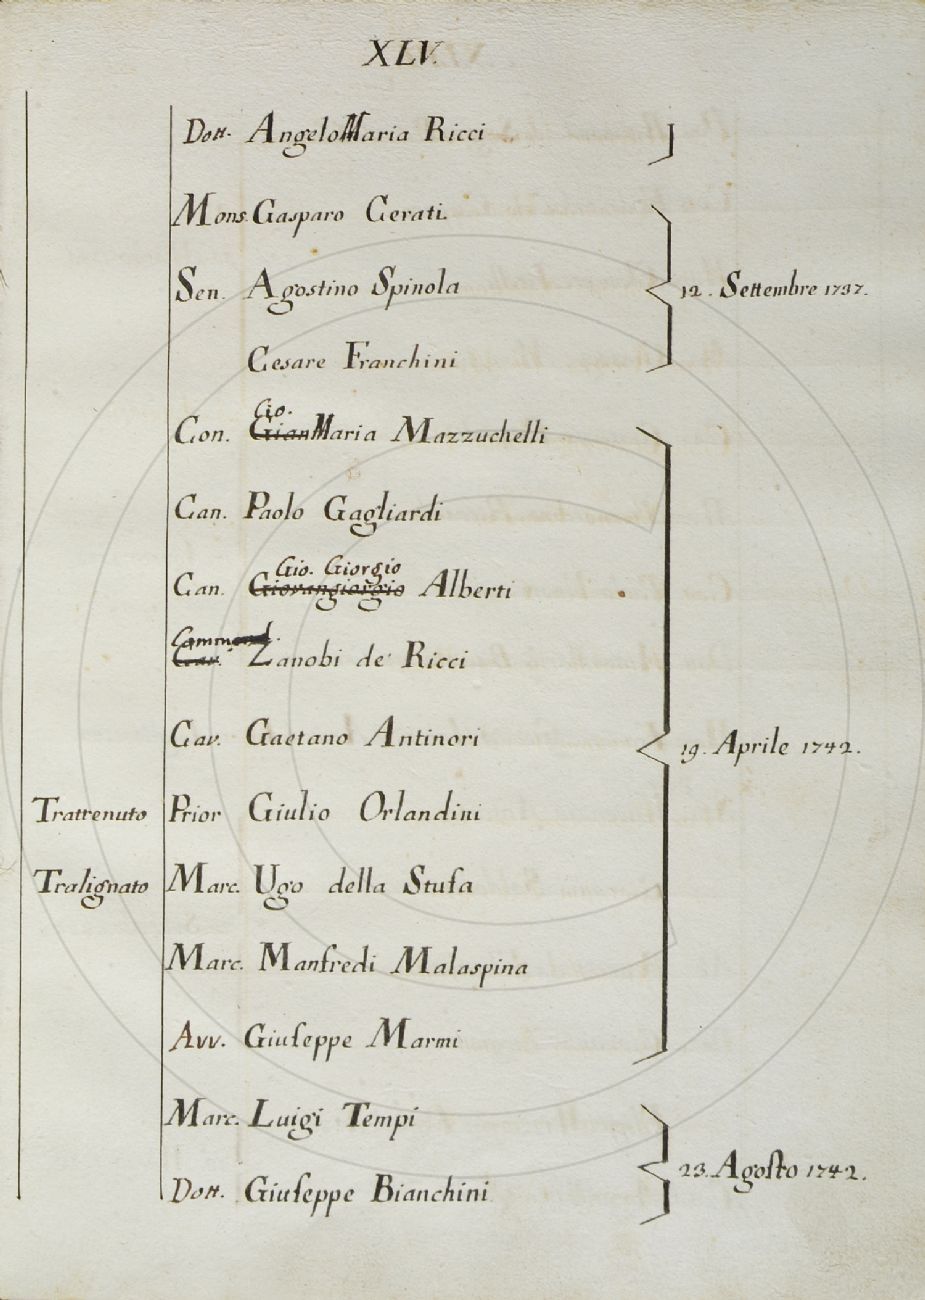 XLV.
Dott. Angelo Maria Ricci
Mons. Gasparo Cerati
Sen. Agostino Spinola
12. Settembre 1737.
Cesare Franchini
Gio.
Con. Gian Maria Mazzuchelli
Can. Paolo Gagliardi
Gio. Giorgio
Can. Giovangiorgio Alberti
Commend.
Cav. Zanobi de' Ricci
Cav. Gaetano Antinori
19. Aprile 1742.
Trattenuto Prior Giulio Orlandini
Tralignato Marc. Ugo della Stufa
Marc. Manfredi Malaspina
Avv. Giuſeppe Marmi
Marc. Luigi Tempi
23. Agoſto 1742.
Dott. Giuſeppe Bianchini